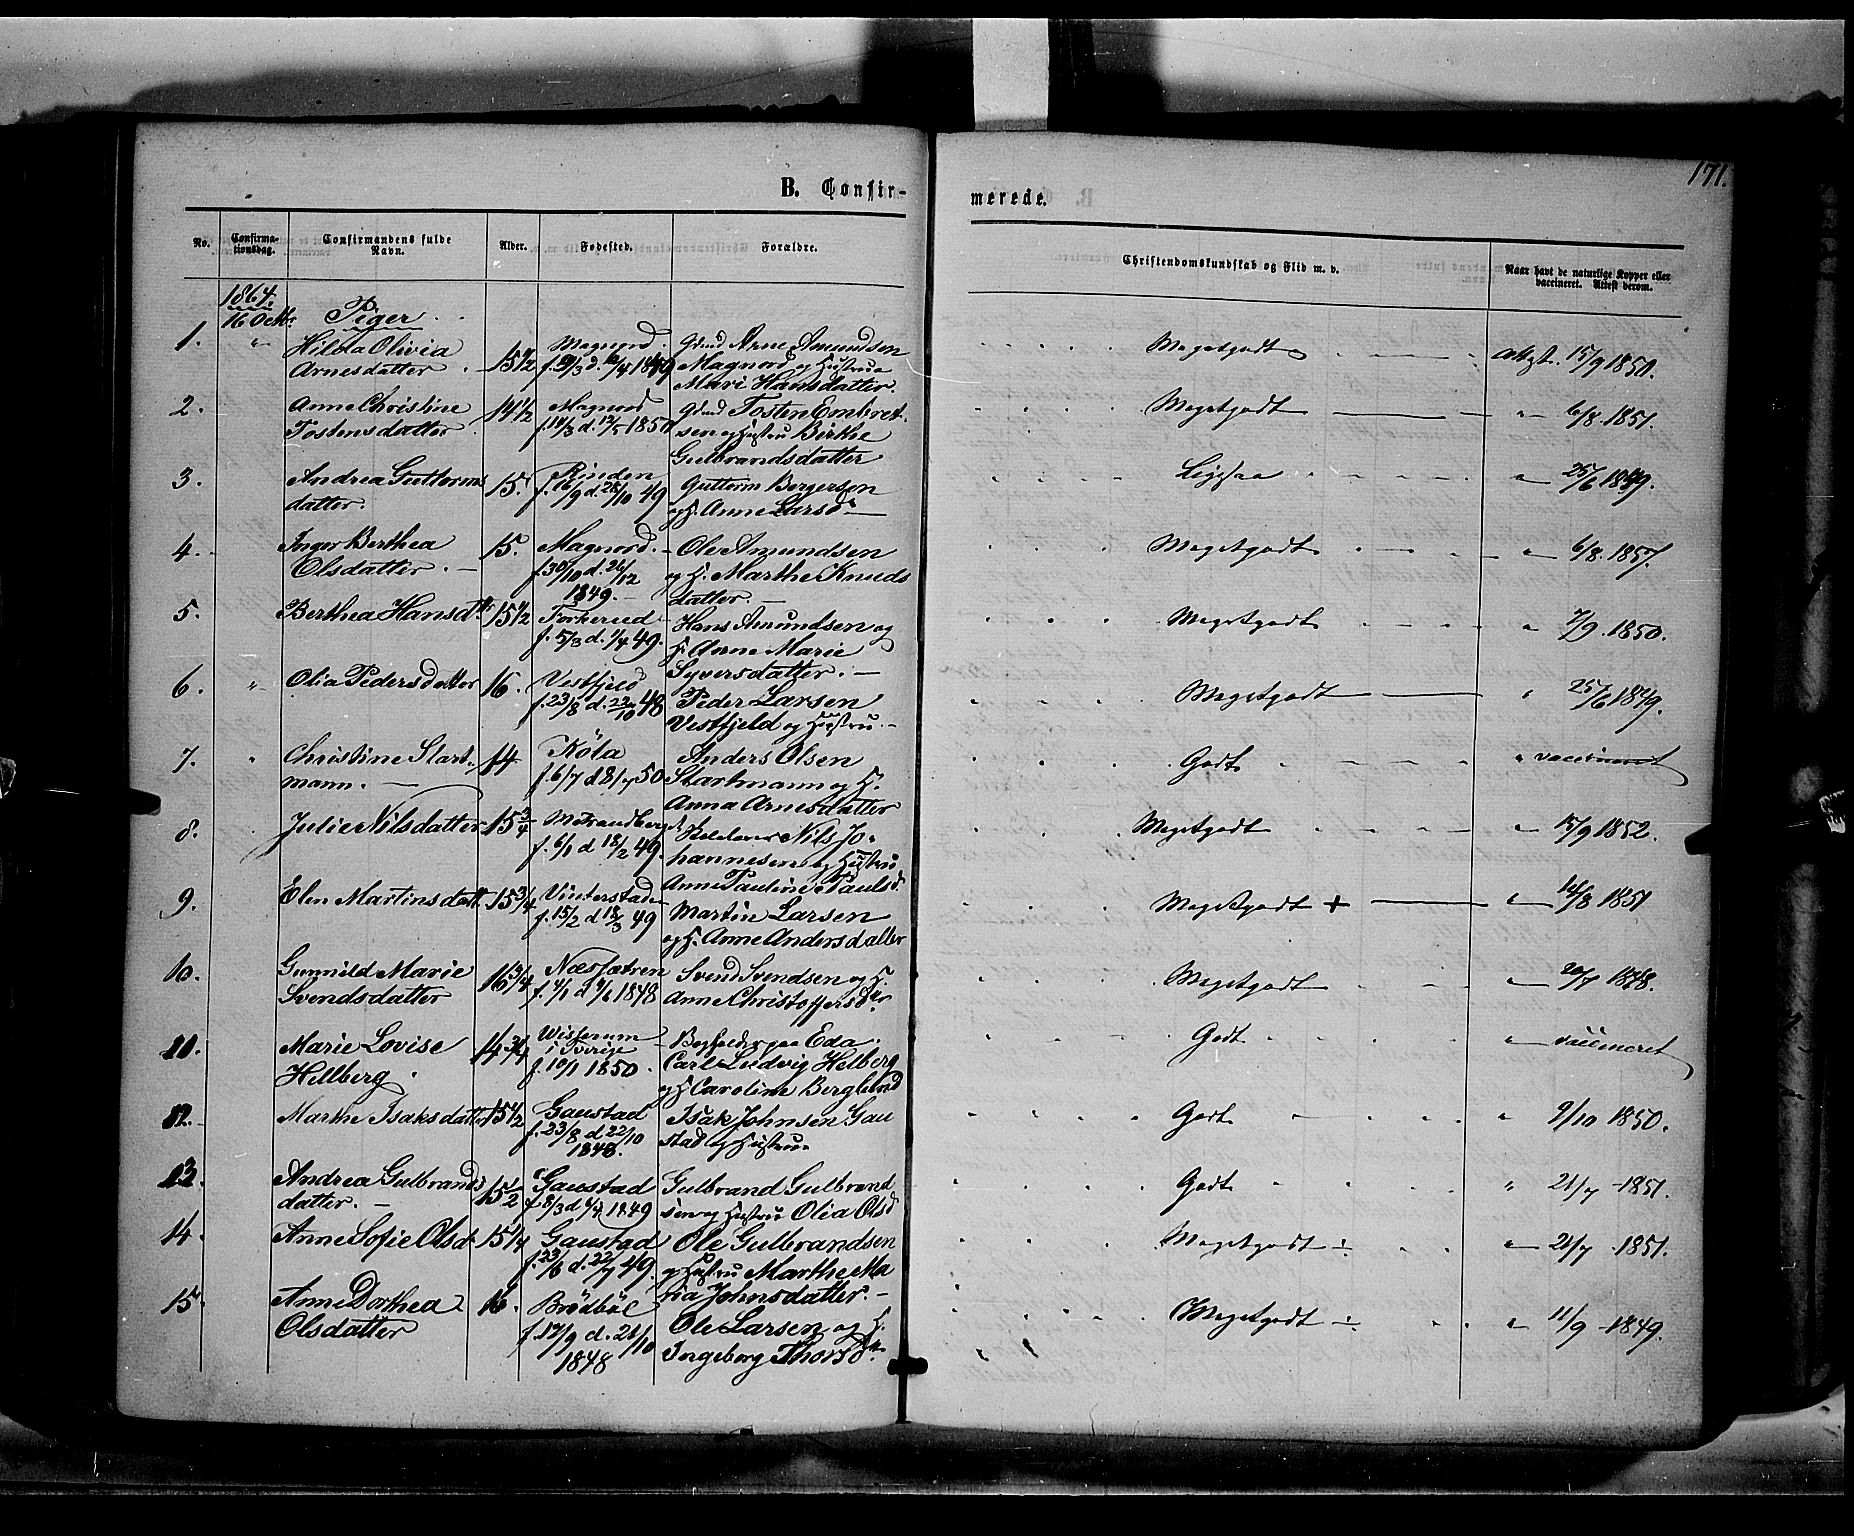 171.
B. Confirmerede.
No. Confirmationsdag. Confirmandens fulde Navn. Alder. Fødested. Forældre. Christendomskundskab og Flid m. v. Naar havt de naturlige Kopper eller vaccineret. Attest derom.
1864.
16 Octbr. Piger
1. " Hilda Olivia
Arnesdatter 15 1/2 Magnord. Gmd Arne Amundsen
Magnord og Hustru
Mari Hansdatter. Megetgodt attest. 15/9 1850.
2. Anne Christine
Tostensdatter 14 1/2 Magnord
f. 14/3 d. 12/5 1850 Gmd Tosten Embret-
sen og Hustru Birthe
Gulbrandsdatter Megetgodt " 6/8 1851.
3. Andrea Guttorms
datter. 15. Rinden
f. 16/9 d. 28/10 49 Guttorm Bergersen
og H. Anne Larsd. Ligesaa " 25/6 1849.
4. Inger Berthea
Olsdatter. 15. Magnord.
f. 30/10 d. 26/12
1849. Ole Amundsen
og H. Marthe Knuds
datter. Megetgodt " 6/8 1857.
5. Berthea Hansdtr 15 1/2 Torkerud
f. 5/3 d. 1/4 49. Hans Amundsen og
H. Anne Marie
Syversdatter. Megetgodt " 7/9 1850.
6. " Olia Pedersdatter 16. Vestfjeld
f. 23/8 d. 22/10 48 Peder Larsen
Vestfjeld og Hustru. Megetgodt " 25/6 1849.
7. " Christine Start-
mann. 14 Köla
f. 6/7 d 8/7 50 Anders Olsen
Startmann og H.
Anna Arnesdatter Godt " vaccineret
8. Julie Nilsdatter 15 3/4 f. 6/1 d 18/2 49. Nils Jo-
hannesen og Hustru
Anne Pauline Paulsd. Megetgodt " 15/9 1852.
9. Elen Martinsdatt. 15 3/4 Vinterstad
f. 15/2 d 18/3 49 Martin Larsen
og H. Anne Andersdatter Megetgodt + " 14/8 1851
10. Gunnild Marie
Svendsdatter 16 3/4 Næssætren
f. 4/1 d 4/6 1848 Svend Svendsen og H.
Anne Christoffersdtr. Megetgodt " 20/7 1848.
11. Marie Lovise
Hellberg. 14 3/4 i Sverige
f. 10/1 1850. Bogholder paa Eda.
Carl Ludvig Helberg
og H. Caroline Berglund Godt " vaccineret
12. Marthe Isaksdatter 15 1/2 Gaustad
f. 23/8 d 22/10
1848. Isak Johnsen Gau
stad og Hustru Godt " 9/10 1850.
13. Andrea Gulbrands
datter. 15 1/2 Gaustad
f. 8/3 d 6/4 1849 Gulbrand Gulbrand
sen og Hustru Olia Olsd Godt " 21/7 1851.
14. Anne Sofie Olsd. 15 1/4 Gaustad
f. 23/6 d. 22/7 49. Ole Gulbrandsen
og Hustru Marthe Ma
ria Johnsdatter. Megetgodt ÷ " 21/7 1851.
15. Anne Dorthea
Olsdatter 16. Brödböl
f. 17/9 d. 21/10
1848 Ole Larsen og H.
Ingeborg Thorsdtr. Megetgodt ÷ " 11/9 1849.